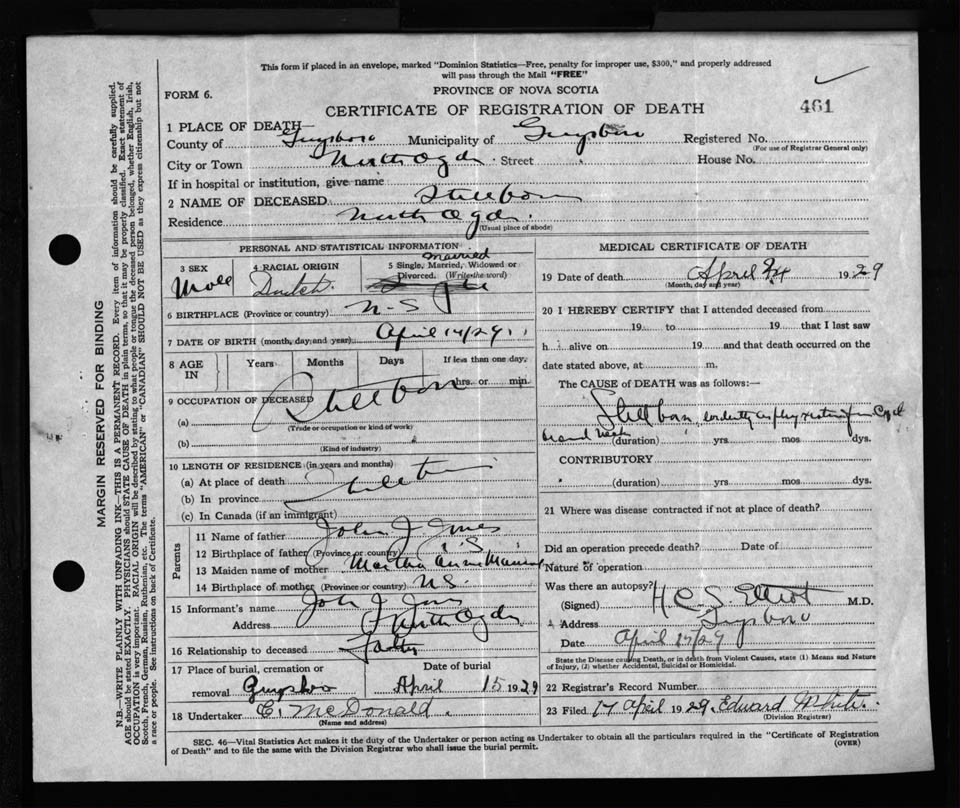 This form if placed in an envelope, marked "Dominion Statistics—Free, penalty for improper use, $300," and properly addressed
will pass through the Mail "FREE"
FORM 6.
PROVINCE OF NOVA SCOTIA
CERTIFICATE OF REGISTRATION OF DEATH
461
1 PLACE OF DEATH—
County of Guysboro Municipality of Guysboro Registered No.
(For use of Registrar General only)
City or Town North Ogden Street House No.
If in hospital or institution, give name
2 NAME OF DECEASED Stillborn
Residence North Ogden.
(Usual place of abode)
PERSONAL AND STATISTICAL INFORMATION
3 SEX Male
4 RACIAL ORIGIN Dutch
5 Single, Married, Widowed or Divorced. (Write the word)
married
6 BIRTHPLACE (Province or country) N-S
7 DATE OF BIRTH (month, day and year) April 14/29
8 AGE IN Years Months Days If less than one day, hrs. or min.
9 OCCUPATION OF DECEASED Stillborn
(a)
(Trade or occupation or kind of work)
(b)
(Kind of industry)
10 LENGTH OF RESIDENCE (in years and months)
(a) At place of death
(b) In province
(c) In Canada (if an immigrant)
Parents
11 Name of father John J Jones
12 Birthplace of father (Province or country) N.S
13 Maiden name of mother Martha
14 Birthplace of mother (Province or country) N.S.
15 Informant's name John J Jones
Address North Ogden
16 Relationship to deceased Father
17 Place of burial, cremation or removal Guysboro
Date of burial April 15 1929
18 Undertaker C. McDonald.
(Name and address)
MEDICAL CERTIFICATE OF DEATH
19 Date of death April 1929
(Month, day and year)
20 I HEREBY CERTIFY that I attended deceased from
19 to 19 that I last saw
h alive on 19 and that death occurred on the
date stated above, at m.
The CAUSE of DEATH was as follows:—
Still born,
around neck (duration) yrs mos dys.
CONTRIBUTORY
(duration) yrs mos dys.
21 Where was disease contracted if not at place of death?
Did an operation precede death? Date of
Nature of operation
Was there an autopsy?
(Signed) H C S. Elliot M.D.
Address Guysboro
Date April 17/29
State the Disease causing Death, or in death from Violent Causes, state (1) Means and Nature
of Injury, (2) whether Accidental, Suicidal or Homicidal.
22 Registrar's Record Number
23 Filed 17 April 1929. Edward White.
(Division Registrar)
SEC. 46—Vital Statistics Act makes it the duty of the Undertaker or person acting as Undertaker to obtain all the particulars required in the "Certificate of Registration
of Death" and to file the same with the Division Registrar who shall issue the burial permit.
(OVER)
MARGIN RESERVED FOR BINDING
N.B.—WRITE PLAINLY WITH UNFADING INK—THIS IS A PERMANENT RECORD. Every item of information should be carefully supplied.
AGE should be stated EXACTLY. PHYSICIANS should STATE CAUSE OF DEATH in plain terms, so that it may be properly classified. Exact statement of
OCCUPATION is very important. RACIAL ORIGIN will be described by stating to what people or tongue the deceased person belonged, whether English, Irish,
Scotch, French, German, Russian, Ruthenian, etc. The terms "AMERICAN" or "CANADIAN" SHOULD NOT BE USED as they express citizenship but not
a race or people. See instructions on back of Certificate.